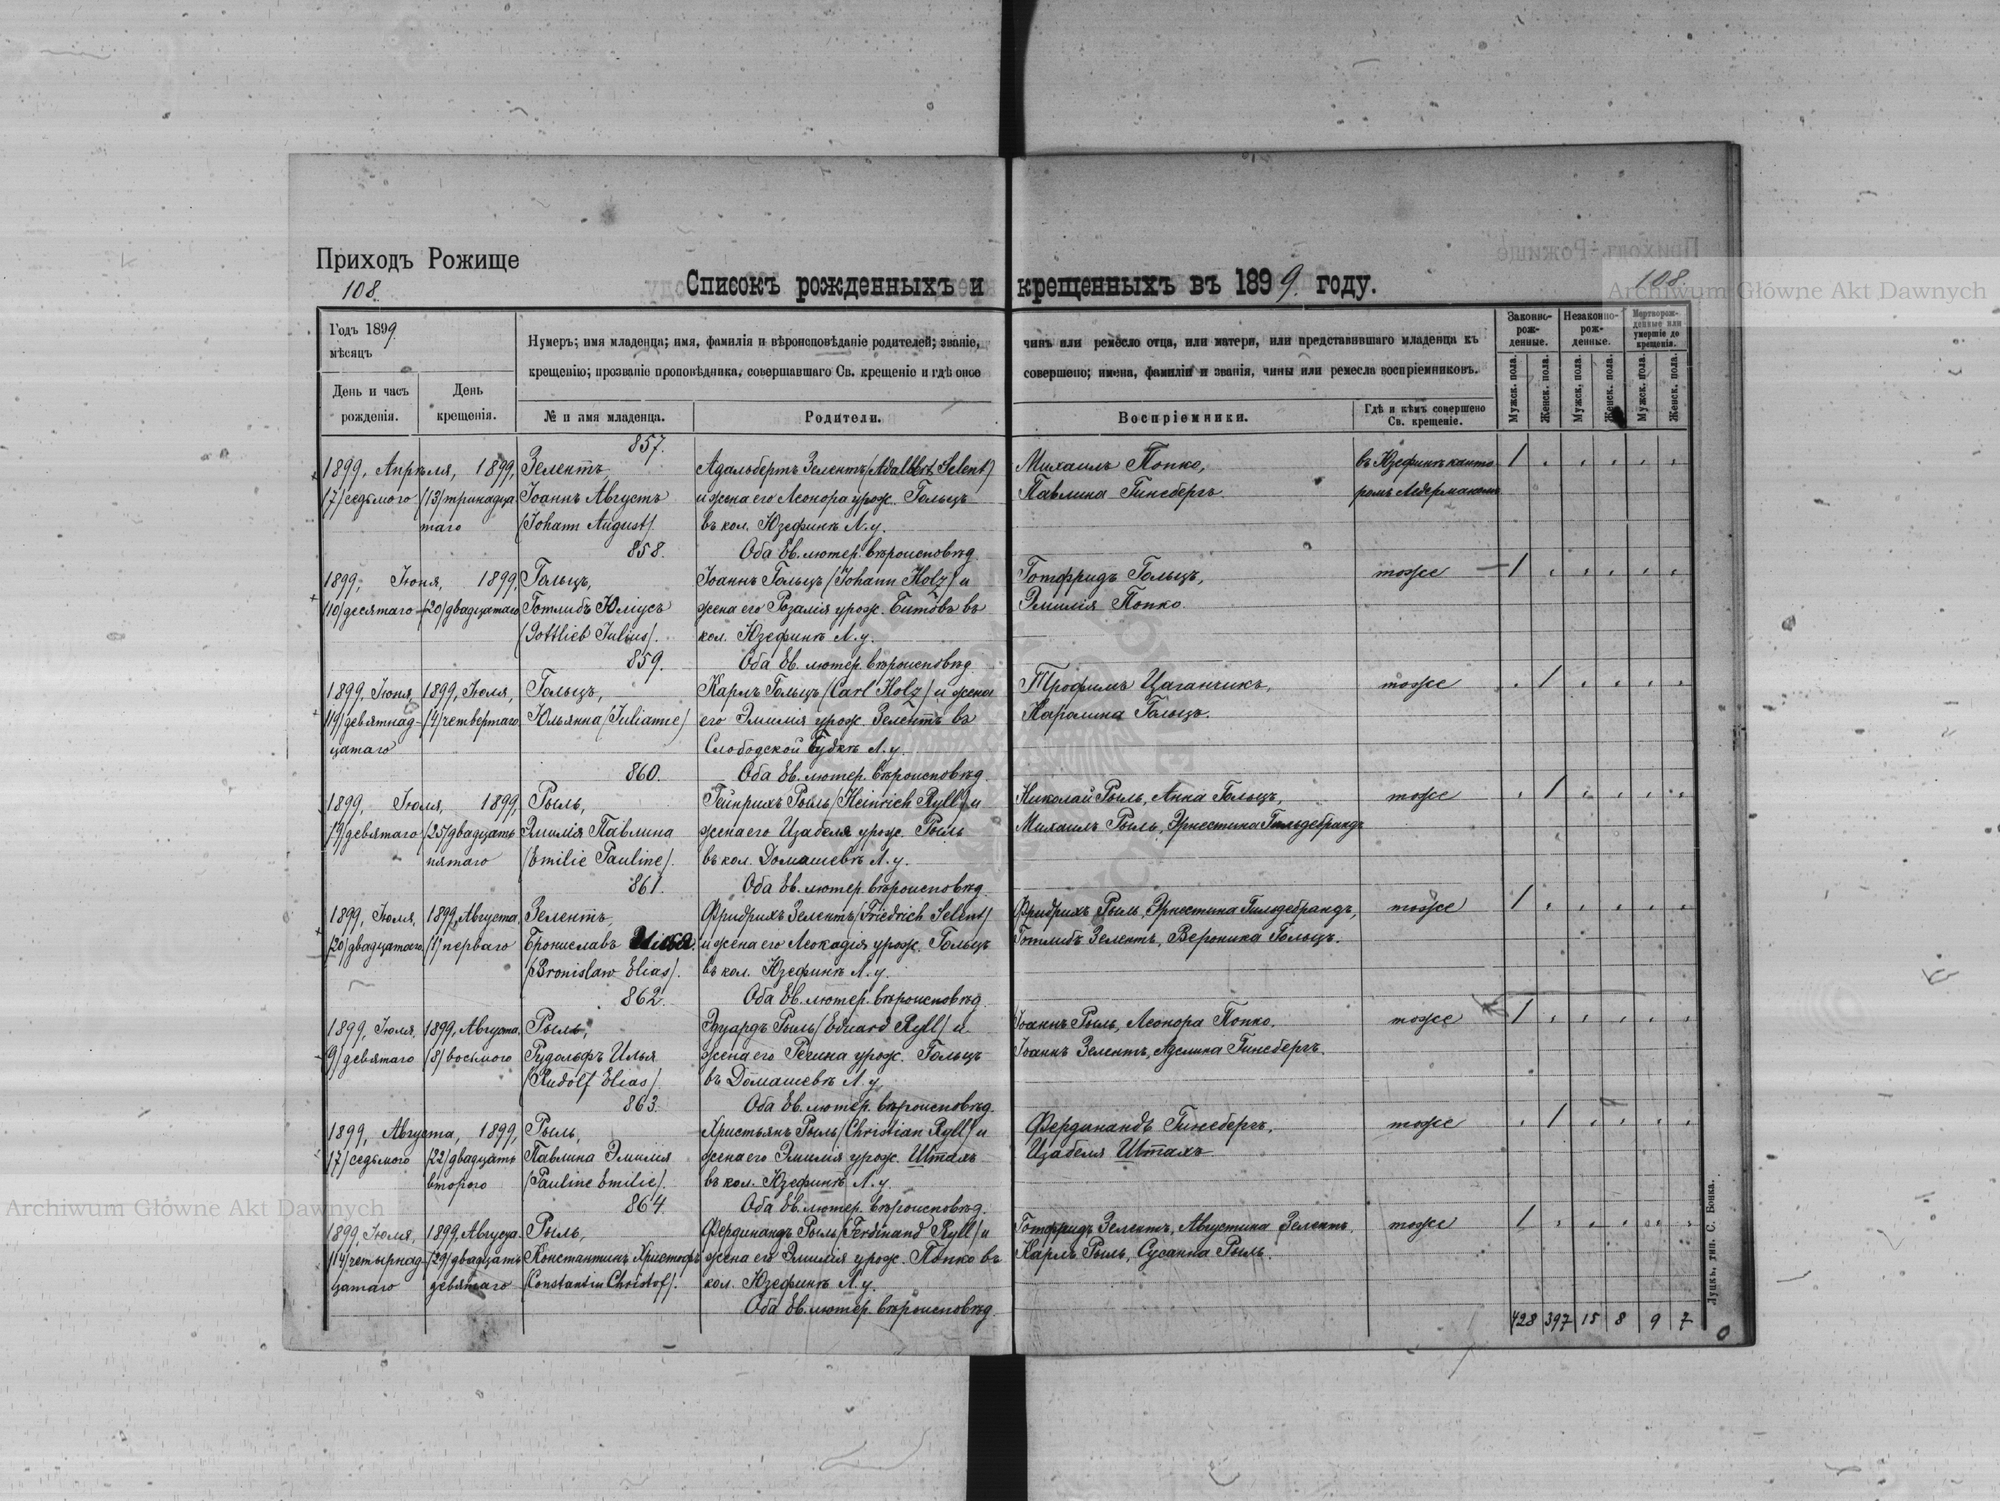 Приходъ Рожище
108.
Списокъ рожденныхъ и крещенныхъ въ 1899. году.
108.
Archiwum Główne Akt Dawnych
Годъ 1899.
мѣсяцъ
День и часъ рожденія.
День крещенія.
Нумеръ; имя младенца; имя, фамилія и вѣроисповѣданіе родителей; званіе, чинъ или ремесло отца, или матери, или представившаго младенца къ
крещенію; прозваніе проповѣдника, совершавшаго Св. крещеніе и гдѣ оное совершено; имена, фамиліи и званія, чины или ремесла воспріемниковъ.
№ и имя младенца.
Родители.
Воспріемники.
Гдѣ и кѣмъ совершено Св. крещеніе.
Законно-рож-денные.
Незаконно-рож-денные.
Мертворож-денные или умершіе до крещенія.
Мужск. пола.
Женск. пола.
Мужск. пола.
Женск. пола.
Мужск. пола.
Женск. пола.
857.
1899, Апрѣля, 1899, Зелентъ, Адальбертъ Зелентъ (Adalbert Selent) Михаилъ Попко, въ Юзефинѣ канто 1
(7) седьмого (13) тринадца Іоаннъ Августъ и жена его Леонора урож. Гольцъ Павлина Гинсбергъ. ромъ Ледерманомъ
таго (Johann August). въ кол. Юзефинѣ Л. у.
858. Оба Ев. лютер. вѣроисповѣд.
1899, Іюня, 1899, Гольцъ, Іоаннъ Гольцъ (Johann Holz) и Готфридъ Гольцъ, тоже 1
(10) десятаго (20) двадцатаго Готлибъ Юліусъ жена его Розалія урож. Битовъ въ Эмилія Попко.
(Gottlieb Julius). кол. Юзефинѣ Л. у.
859. Оба Ев. лютер. вѣроисповѣд.
1899, Іюня, 1899, Іюля, Гольцъ, Карлъ Гольцъ (Carl Holz) и жена Трофимъ Цаганчикъ, тоже 1
(19) девятнад- (4) четвертаго Юльянна (Julianne) его Эмилія урож. Зелентъ въ Каролина Гольцъ.
цатаго Слободской Будкѣ Л. у.
860. Оба Ев. лютер. вѣроисповѣд.
1899, Іюля, 1899, Рыль, Гейнрихъ Рыль (Heinrich Ryll) и Николай Рыль, Анна Гольцъ, тоже 1
(9) девятаго (25) двадцать Эмилія Павлина жена его Изабеля урож. Рыль Михаилъ Рыль, Эрнестина Гильдебрандъ
пятаго (Emilie Pauline). въ кол. Домашевѣ Л. у.
861. Оба Ев. лютер. вѣроисповѣд.
1899, Іюля, 1899, Августа, Зелентъ, Фридрихъ Зелентъ (Friedrich Selent) Фридрихъ Рыль, Эрнестина Гильдебрандъ, тоже 1
(20) двадцатаго (1) перваго Брониславъ Илья и жена его Леокадія урож. Гольцъ Готлибъ Зелентъ, Вероника Гольцъ.
(Bronislaw Elias). въ кол. Юзефинѣ Л. у.
862. Оба Ев. лютер. вѣроисповѣд.
1899, Іюля, 1899, Августа, Рыль, Эдуардъ Рыль (Eduard Ryll) и Іоаннъ Рыль, Леонора Попко. тоже 1
9) девятаго (8) восьмого Рудольфъ Илья жена его Регина урож. Гольцъ Іоаннъ Зелентъ, Аделина Гинсбергъ.
(Rudolf Elias). въ Домашевѣ Л. у.
863. Оба Ев. лютер. вѣроисповѣд.
1899, Августа, 1899, Рыль, Христьянъ Рыль (Christian Ryll) и Фердинандъ Гинсбергъ, тоже 1
(7) седьмого (22) двадцать Павлина Эмилія жена его Эмилія урож. Шталь Изабеля Шталь
второго (Pauline Emilie). въ кол. Юзефинѣ Л. у.
864. Оба Ев. лютер. вѣроисповѣд.
1899, Іюля, 1899, Августа Рыль, Фердинандъ Рыль (Ferdinand Ryll) и Готфридъ Зелентъ, Августина Зелентъ, тоже 1
(14) четырнад- (29) двадцать Константинъ Христофъ жена его Эмилія урож. Попко въ Карлъ Рыль, Сусанна Рыль.
цатаго девятаго (Constantin Christof). кол. Юзефинѣ Л. у.
Оба Ев. лютер. вѣроисповѣд.
428 397 15 8 9 7
Луцкъ, тип. С. Бонка.
Archiwum Główne Akt Dawnych